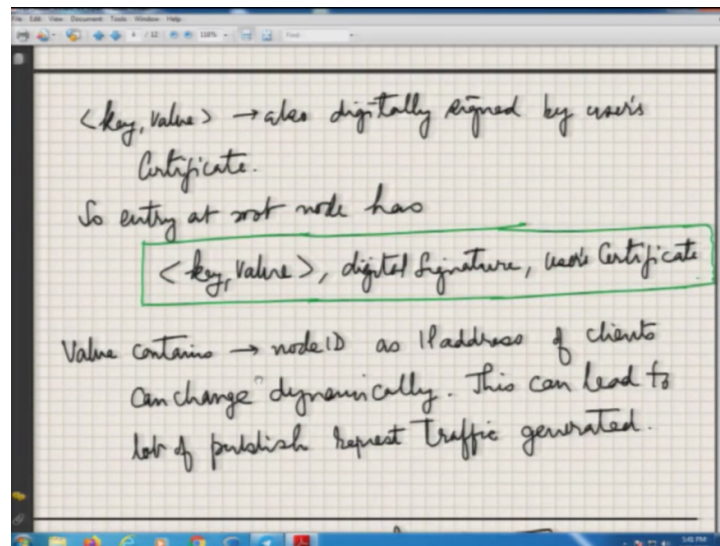 File Edit View Document Tools Window Help
4 / 12 110% Find
<key, value> → also digitally signed by user's
Certificate.
So entry at root node has
<key, value>, digital signature, user's Certificate
Value contains → node ID as IP address of clients
can change dynamically. This can lead to
lot of publish request traffic generated.
5:41 PM